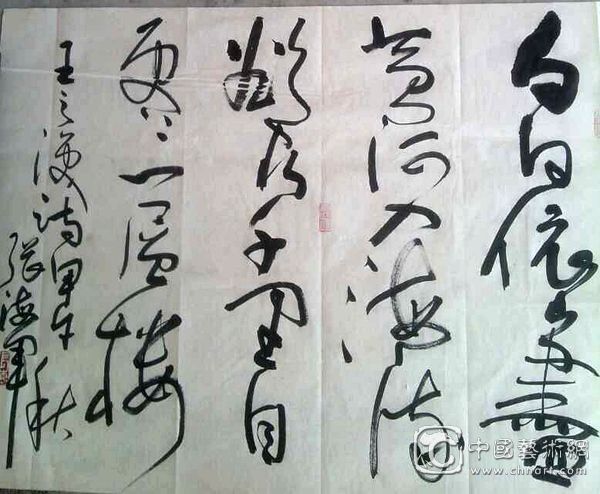 白日依山盡
黄河入海流
欲窮千里目
更上一層樓
王之涣詩甲午秋
張海軍
中國藝術網
www.chnart.com